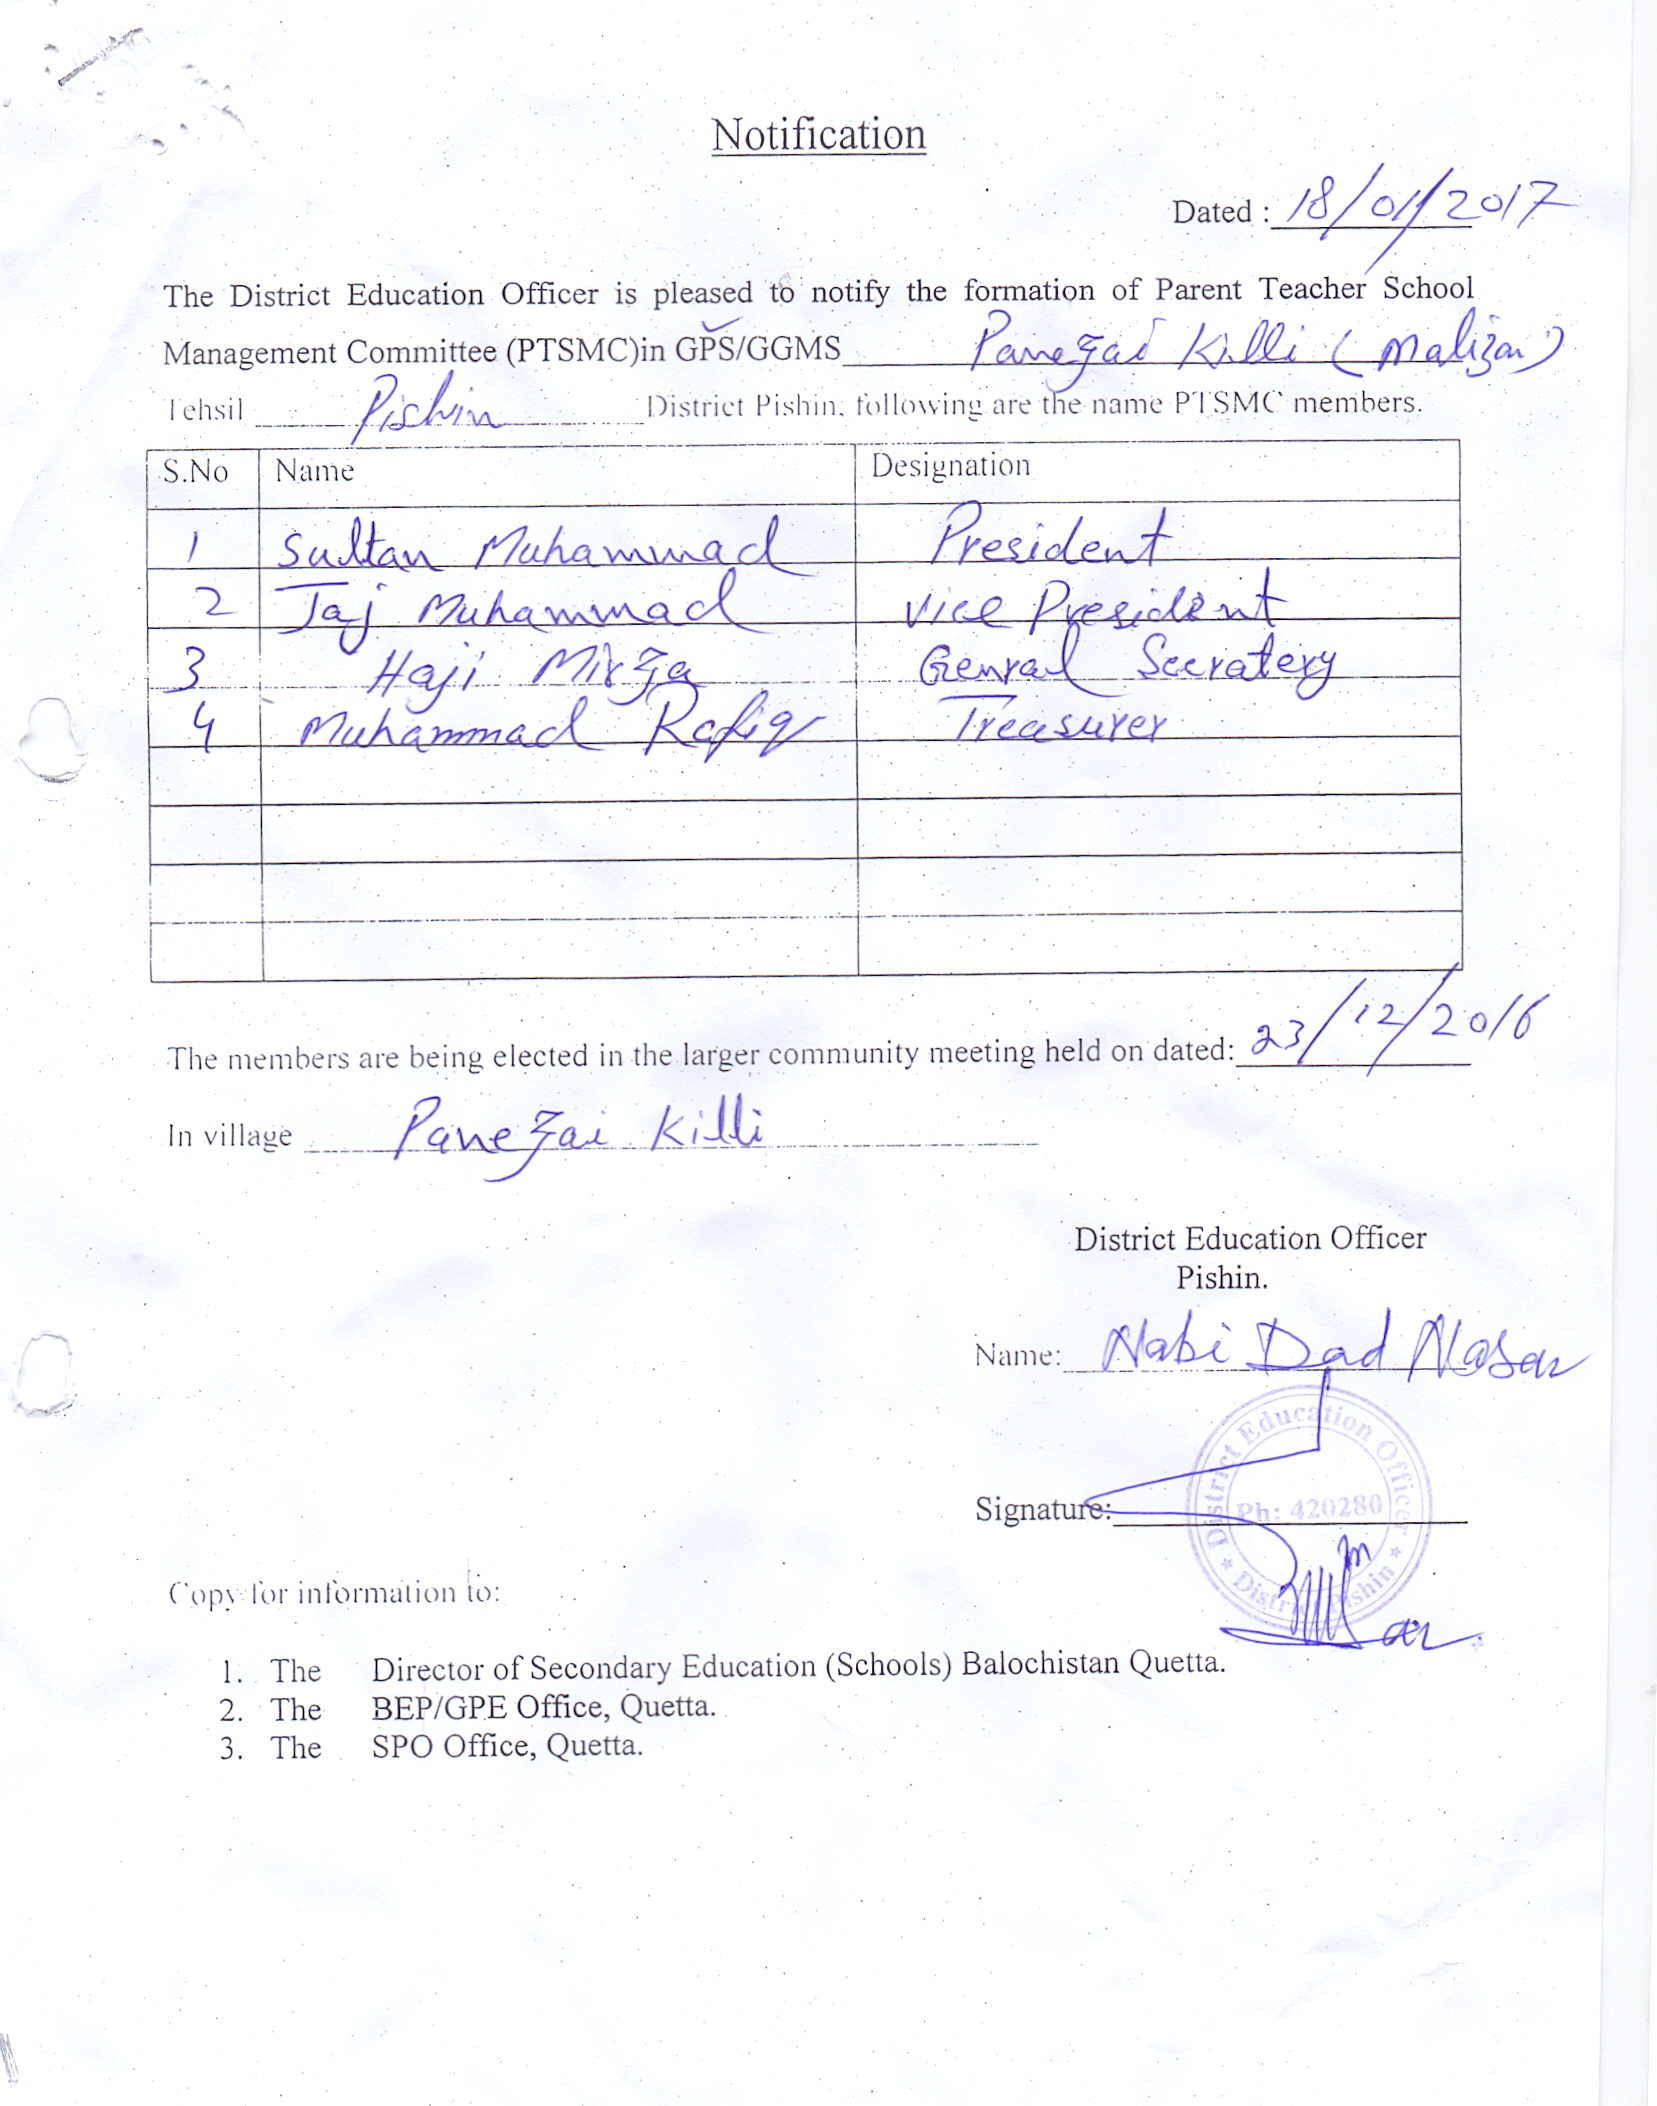 Notification
Dated : 18/01/2017
The District Education Officer is pleased to notify the formation of Parent Teacher School
Management Committee (PTSMC)in GPS/GGMS Panezai Killi (Malizai)
Tehsil Pishin District Pishin, following are the name PTSMC members.
S.No Name Designation
1 Sultan Muhammad President
2 Taj Muhammad Vice President
3 Haji Mirza Genral Secratery
4 Muhammad Rafiq Treasurer
The members are being elected in the larger community meeting held on dated: 23/12/2016
In village Panezai Killi
District Education Officer
Pishin.
Name: Nabi Dad Nasar
District Education Officer
Signature:
Ph: 420280
District Pishin
Copy for information to:
1. The Director of Secondary Education (Schools) Balochistan Quetta.
2. The BEP/GPE Office, Quetta.
3. The SPO Office, Quetta.